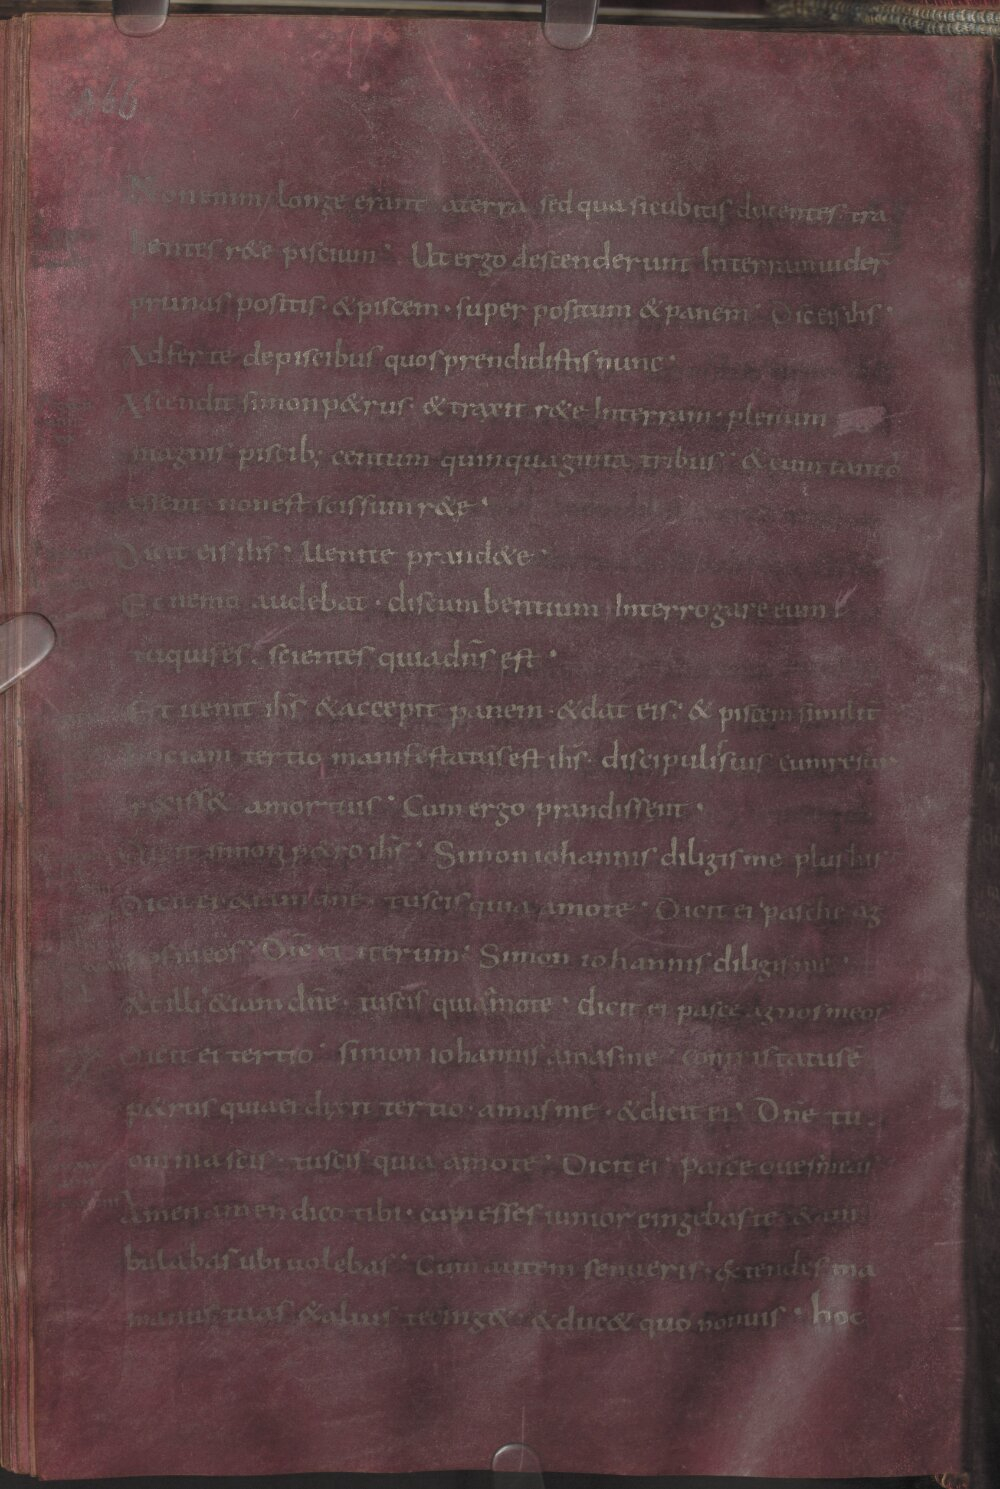 166
Non enim longe erant aterra sed qua sicubitis ducentes tra
hentes r&e piscium· Ut ergo descenderunt Interram uider
prunas positis· &piscem· super positum &panem· Dic eis ihs·
Adferte depiscibus quos prendidistis nunc·
Ascendit simon p&rus· &traxit r&e Interram· plenum
magnis piscib; centum quinquaginta tribus· &cum tanti
essent· non est scissum r&e·
Dicit eis ihs· Uenite prand&e·
Et nemo audebat· discumbentium Interrogare eum
tuquis es· scientes quia dn̄s est·
Et uenit ihs̄ &accepit panem· &dat eis· & piscem similit̄
hoc iam tertio manifestatus est ihs̄· discipulis suis cum resur
r&iss& amortuis· Cum ergo prandissent·
Dicit simon p&ro ihs̄· Simon iohannis diligis me plus his
Dicit ei &iam dn̄e· tuscis quia amote· Dicit ei pasche ag
nos meos· Dic̄ ei iterum· Simon iohannis diligis me·
Ait illi &iam dn̄e· tuscis quiamote· dicit ei pasce agnos meos
Dicit ei tertio· simon iohannis amasme· contristatus ē
p&rus quia ei dixit tertio· amasme· &dicit ei· Dn̄e tu·
omnia scis· tuscis quia amote· Dicit ei· pasce oues meas
Amen amen dico tibi· cum esses iunior cingebas te &am
bulabas ubi uolebas· Cum autem senueris· &tendes ma
manus tuas &alius tecing& &duc& quo nonuis· hoc